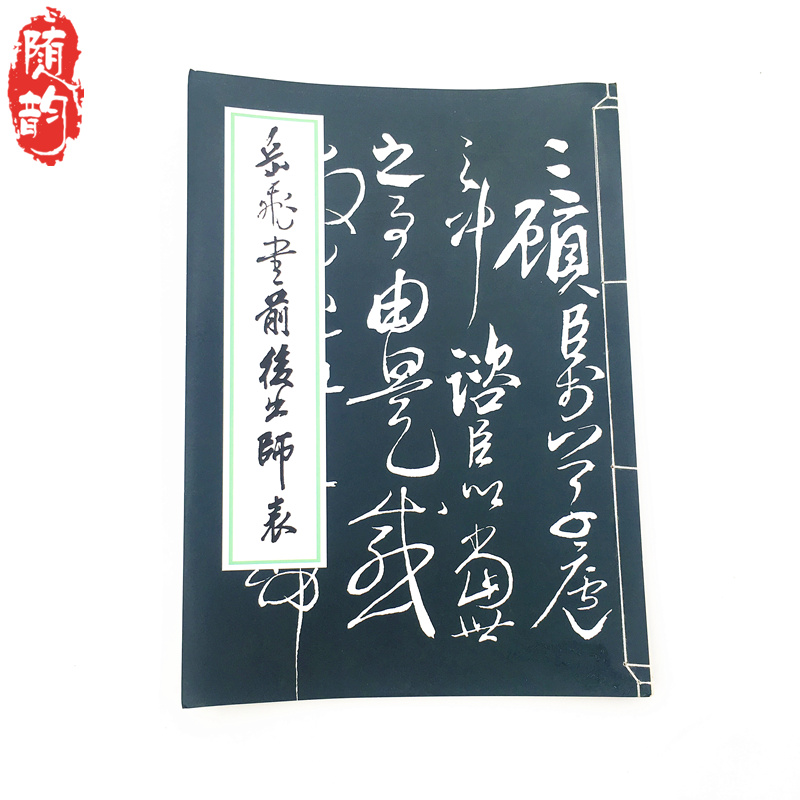 随韵
岳飛書前後出師表
三顧臣於草廬
之中諮臣以當世
之事由是感